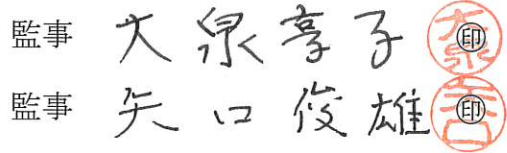 監事 大泉享子 ㊞
監事 矢口俊雄 ㊞